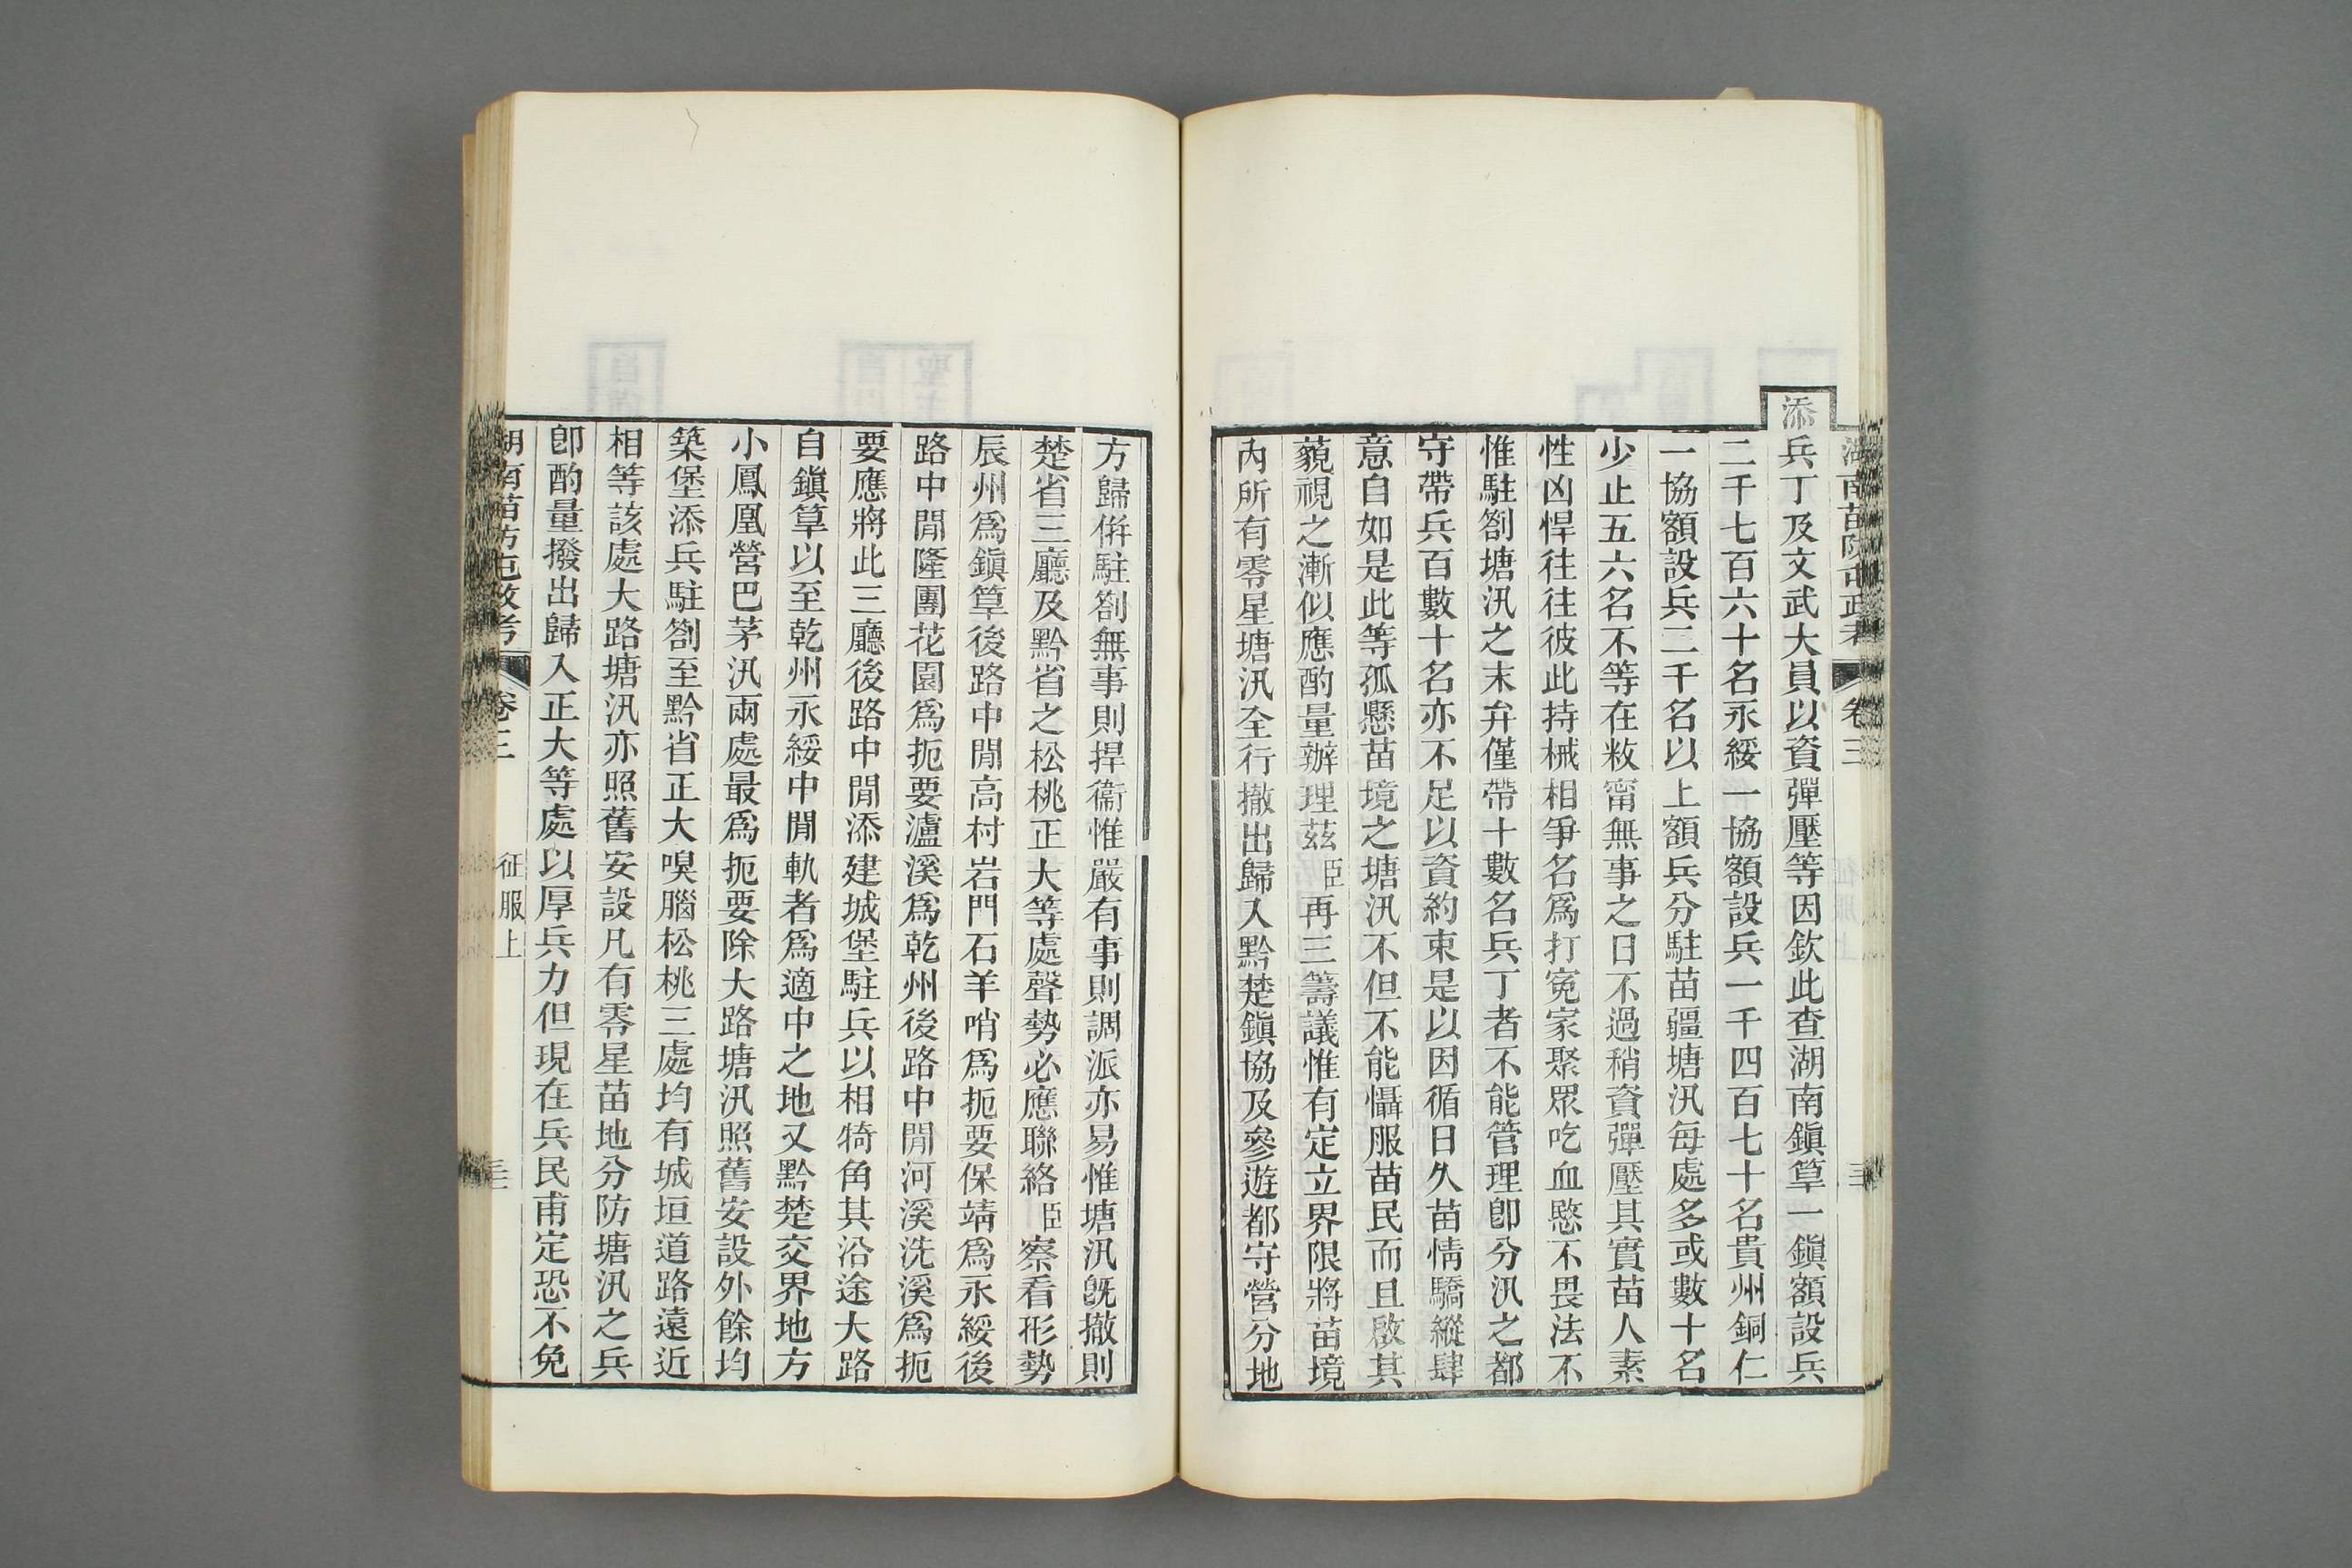 湖南苗防屯政考 卷三
添兵丁及文武大員以資彈壓等因欽此查湖南鎭筸一鎭額設兵
二千七百六十名永綏一協額設兵一千四百七十名貴州銅仁
一協額設兵二千名以上額兵分駐苗疆塘汛每處多或數十名
少止五六名不等在敉甯無事之日不過稍資彈壓其實苗人素
性凶悍往往彼此持械相爭名爲打寃家聚眾吃血愍不畏法不
惟駐劄塘汛之末弁僅帶十數名兵丁者不能管理卽分汛之都
守帶兵百數十名亦不足以資約束是以因循日久苗情驕縱肆
意自如是此等孤懸苗境之塘汛不但不能懾服苗民而且啟其
藐視之漸似應酌量辦理茲臣再三籌議惟有定立界限將苗境
內所有零星塘汛全行撤出歸入黔楚鎭協及參遊都守營分地
方歸倂駐劄無事則捍衞惟嚴有事則調派亦易惟塘汛旣撤則
楚省三廳及黔省之松桃正大等處聲勢必應聯絡臣察看形勢
辰州爲鎭筸後路中閒高村岩門石羊哨爲扼要保靖爲永綏後
路中閒隆團花園爲扼要瀘溪爲乾州後路中閒河溪洗溪爲扼
要應將此三廳後路中閒添建城堡駐兵以相犄角其沿途大路
自鎭筸以至乾州永綏中閒軌者爲適中之地又黔楚交界地方
小鳳凰營巴茅汛兩處最爲扼要除大路塘汛照舊安設外餘均
築堡添兵駐劄至黔省正大嗅腦松桃三處均有城垣道路遠近
相等該處大路塘汛亦照舊安設凡有零星苗地分防塘汛之兵
卽酌量撥出歸入正大等處以厚兵力但現在兵民甫定恐不免
湖南苗防屯政考 卷三 征服上 三